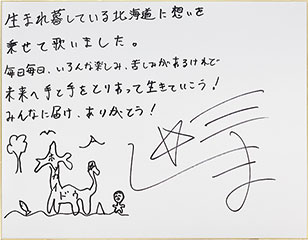 生まれ暮している北海道に想いを
乗せて歌いました。
毎日毎日、いろんな楽しみ、苦しみがあるけれど
未来へ手と手をとりあって生きていこう!
みんなに届け、ありがとう!